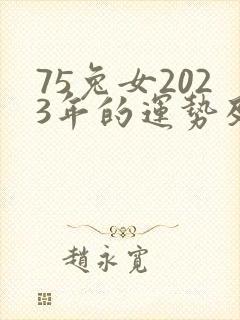 75兔女202
3年的運勢
趙永寬